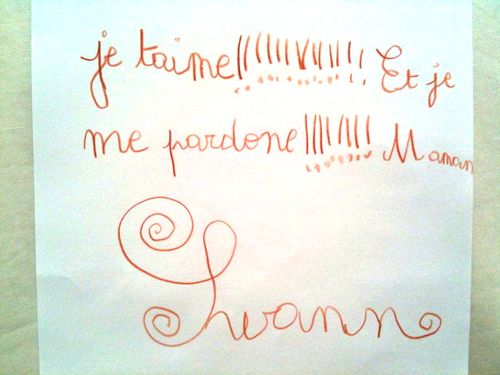 je taime!!!!!!!!!!!! Et je
me pardone!!!!!!!! Maman
Swann